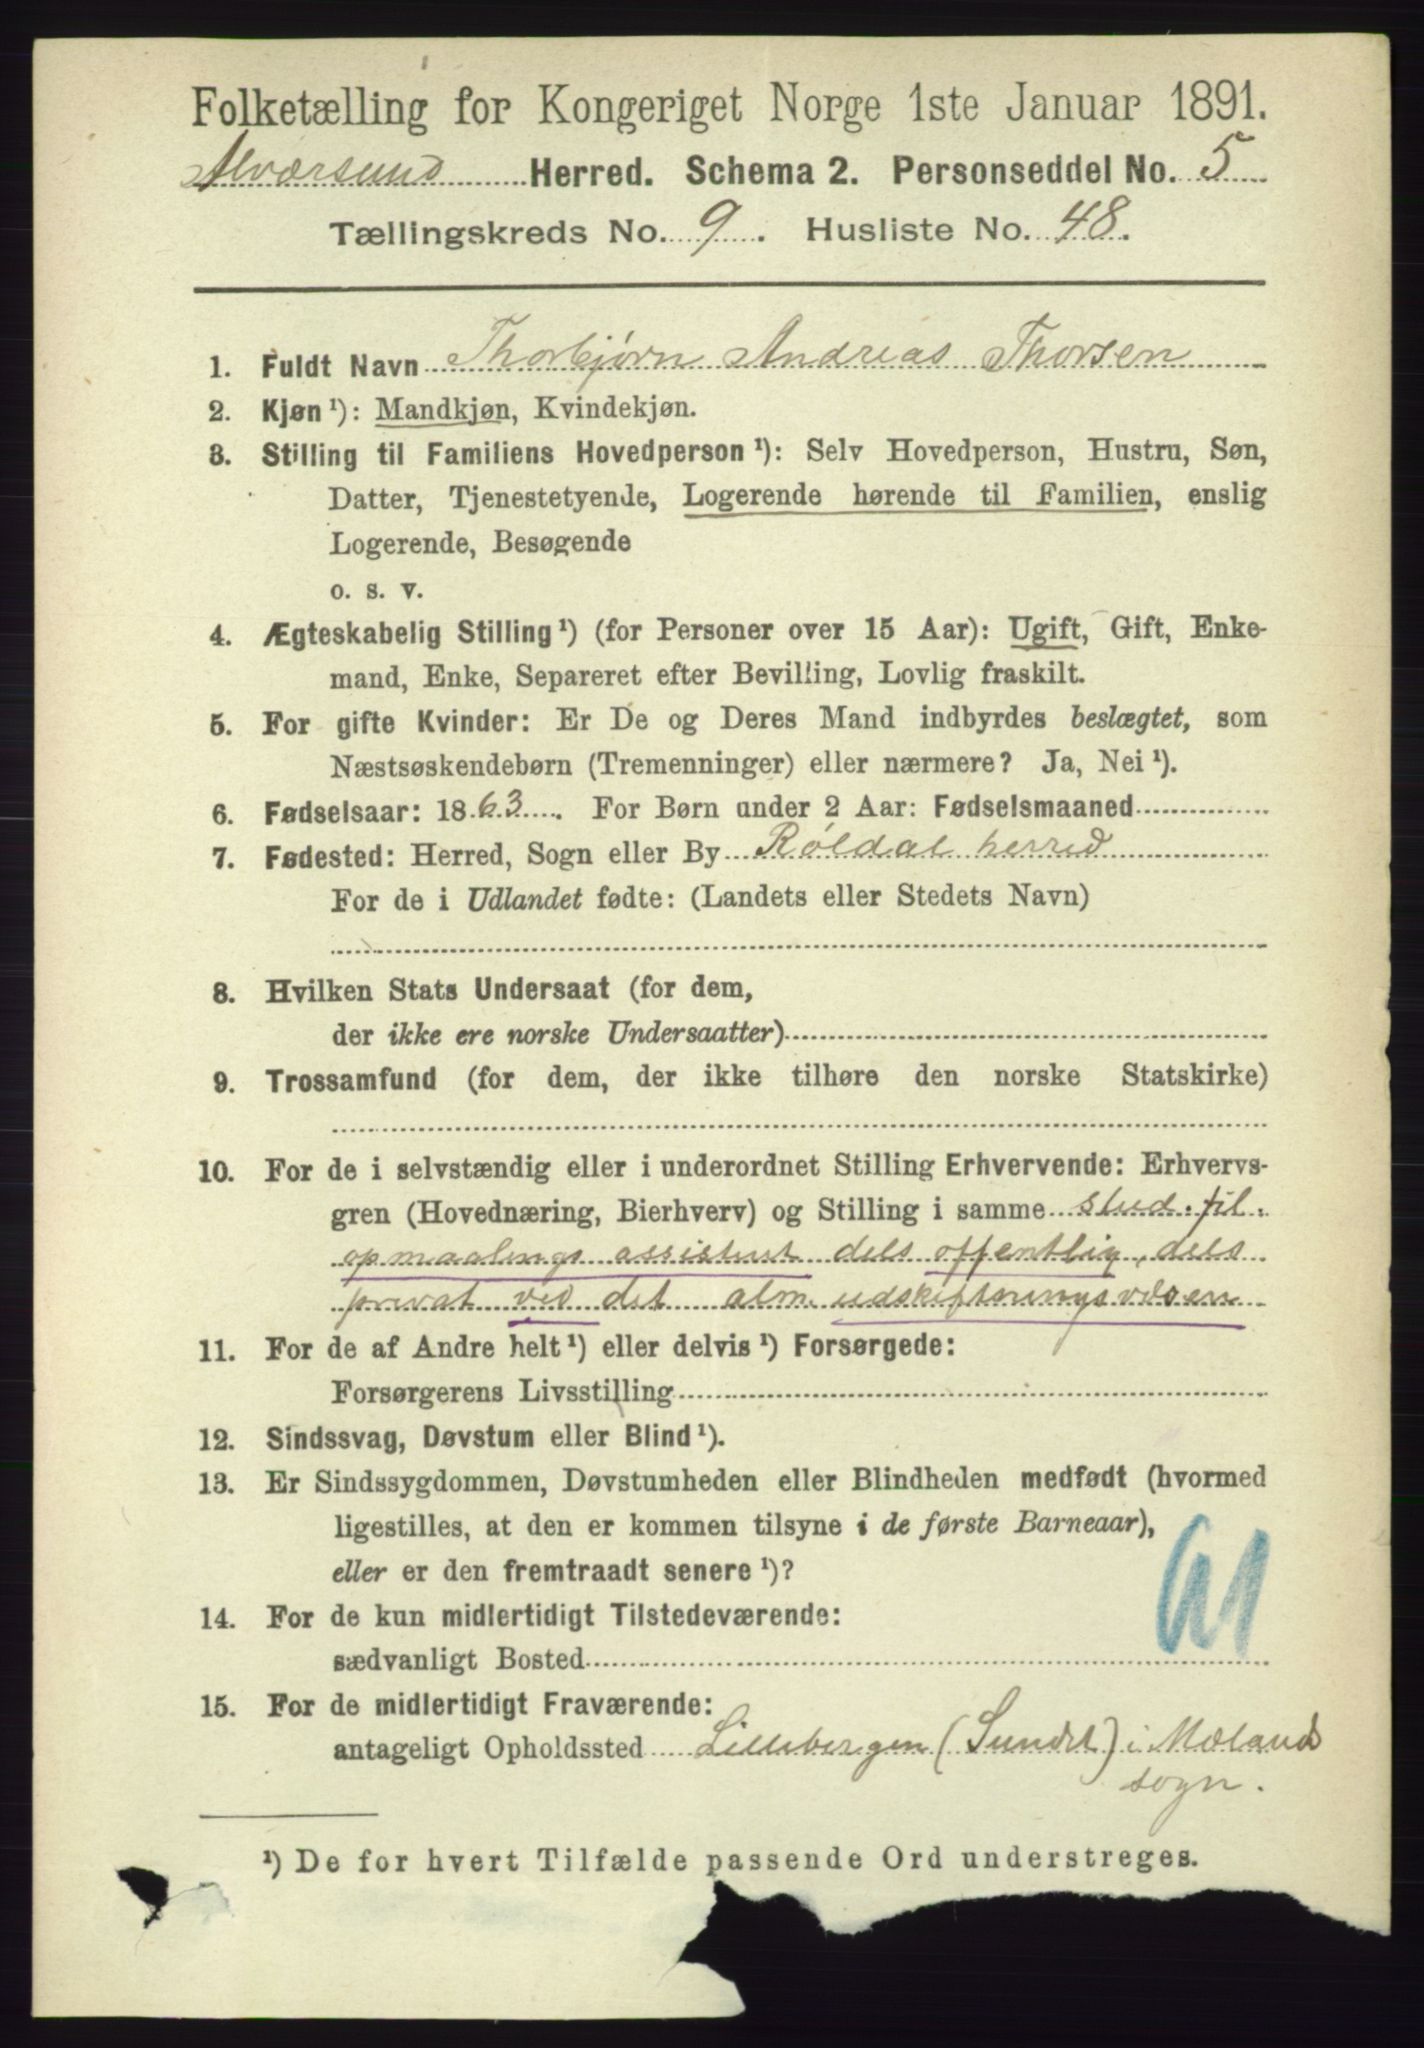 Folketælling for Kongeriget Norge 1ste Januar 1891.
Alversund Herred. Schema 2. Personseddel No. 5
Tællingskreds No. 9. Husliste No. 48.
1. Fuldt Navn Thorbjørn Andreas Thorsen
2. Kjøn ¹): Mandkjøn, Kvindekjøn.
3. Stilling til Familiens Hovedperson ¹): Selv Hovedperson, Hustru, Søn,
Datter, Tjenestetyende, Logerende hørende til Familien, enslig
Logerende, Besøgende
o. s. v.
4. Ægteskabelig Stilling ¹) (for Personer over 15 Aar): Ugift, Gift, Enke-
mand, Enke, Separeret efter Bevilling, Lovlig fraskilt.
5. For gifte Kvinder: Er De og Deres Mand indbyrdes beslægtet, som
Næstsøskendebørn (Tremenninger) eller nærmere? Ja, Nei ¹).
6. Fødselsaar: 1863. For Børn under 2 Aar: Fødselsmaaned
7. Fødested: Herred, Sogn eller By Røldal herred
For de i Udlandet fødte: (Landets eller Stedets Navn)
8. Hvilken Stats Undersaat (for dem,
der ikke ere norske Undersaatter)
9. Trossamfund (for dem, der ikke tilhøre den norske Statskirke)
10. For de i selvstændig eller i underordnet Stilling Erhvervende: Erhvervs-
gren (Hovednæring, Bierhverv) og Stilling i samme stud. fil.
opmaalings assistent dels offentlig, dels
privat ved det alm. udskiftningsvæsen
11. For de af Andre helt ¹) eller delvis ¹) Forsørgede:
Forsørgerens Livsstilling
12. Sindssvag, Døvstum eller Blind ¹).
13. Er Sindssygdommen, Døvstumheden eller Blindheden medfødt (hvormed
ligestilles, at den er kommen tilsyne i de første Barneaar),
eller er den fremtraadt senere ¹)?
14. For de kun midlertidigt Tilstedeværende:
sædvanligt Bosted
15. For de midlertidigt Fraværende:
antageligt Opholdssted Lillebergen (Sundet) i Mæland
sogn.
¹) De for hvert Tilfælde passende Ord understreges.